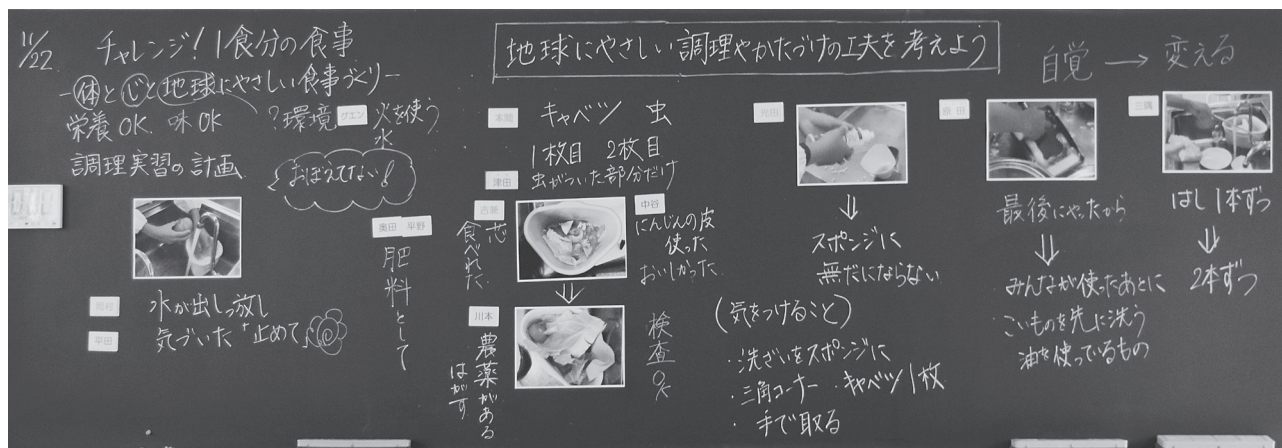 11/22
チャレンジ!1食分の食事
-体と心と地球にやさしい食事づくり-
栄養OK. 味OK
?環境
グエン
火を使う
水
調理実習の計画
おぼえてない!
水が出しっ放し
平田
気づいた "止めて"
奥田 平野
肥料として
地球にやさしい調理やかたづけの工夫を考えよう
本間
キャベツ 虫
1枚目 2枚目
津田
虫がついた部分だけ
芯
食べれた
中谷
にんじんの皮
使った
おいしかった
川本
農薬がある
はがす
検査OK
⇓
スポンジに
無だにならない
(気をつけること)
・洗ざいをスポンジに
・三角コーナー ・キャベツ1枚
・手で取る
自覚 → 変える
最後にやったから
⇓
みんなが使ったあとに
・こいものを先に洗う
油を使っているもの
三隅
はし1本ずつ
⇓
2本ずつ